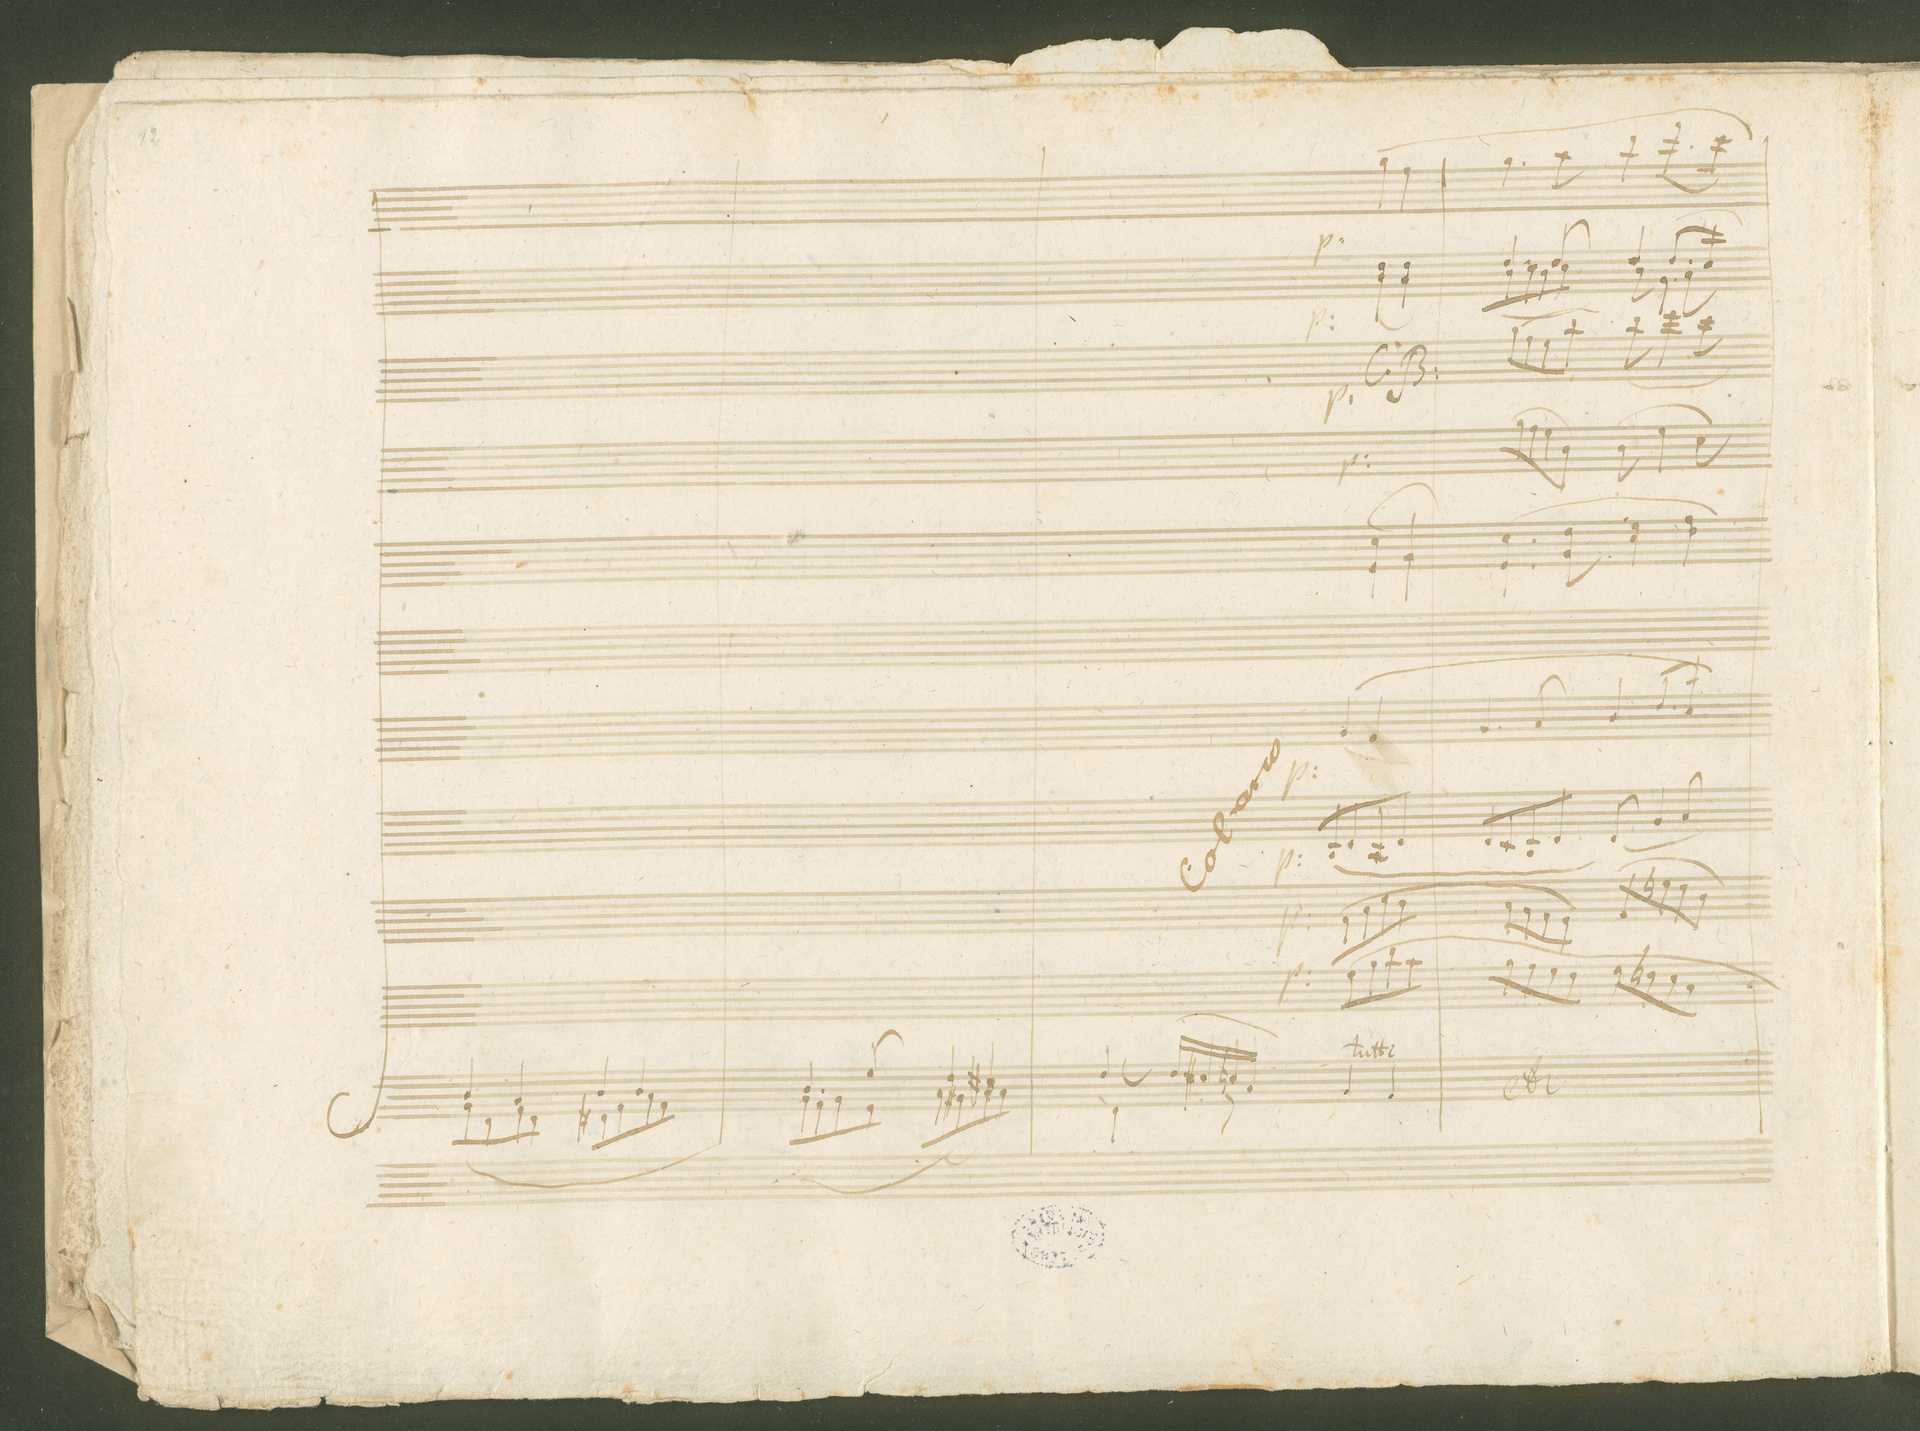 12
p:
p:
C. B:
p.
p:
Col arco
p:
p:
p:
p:
tutti